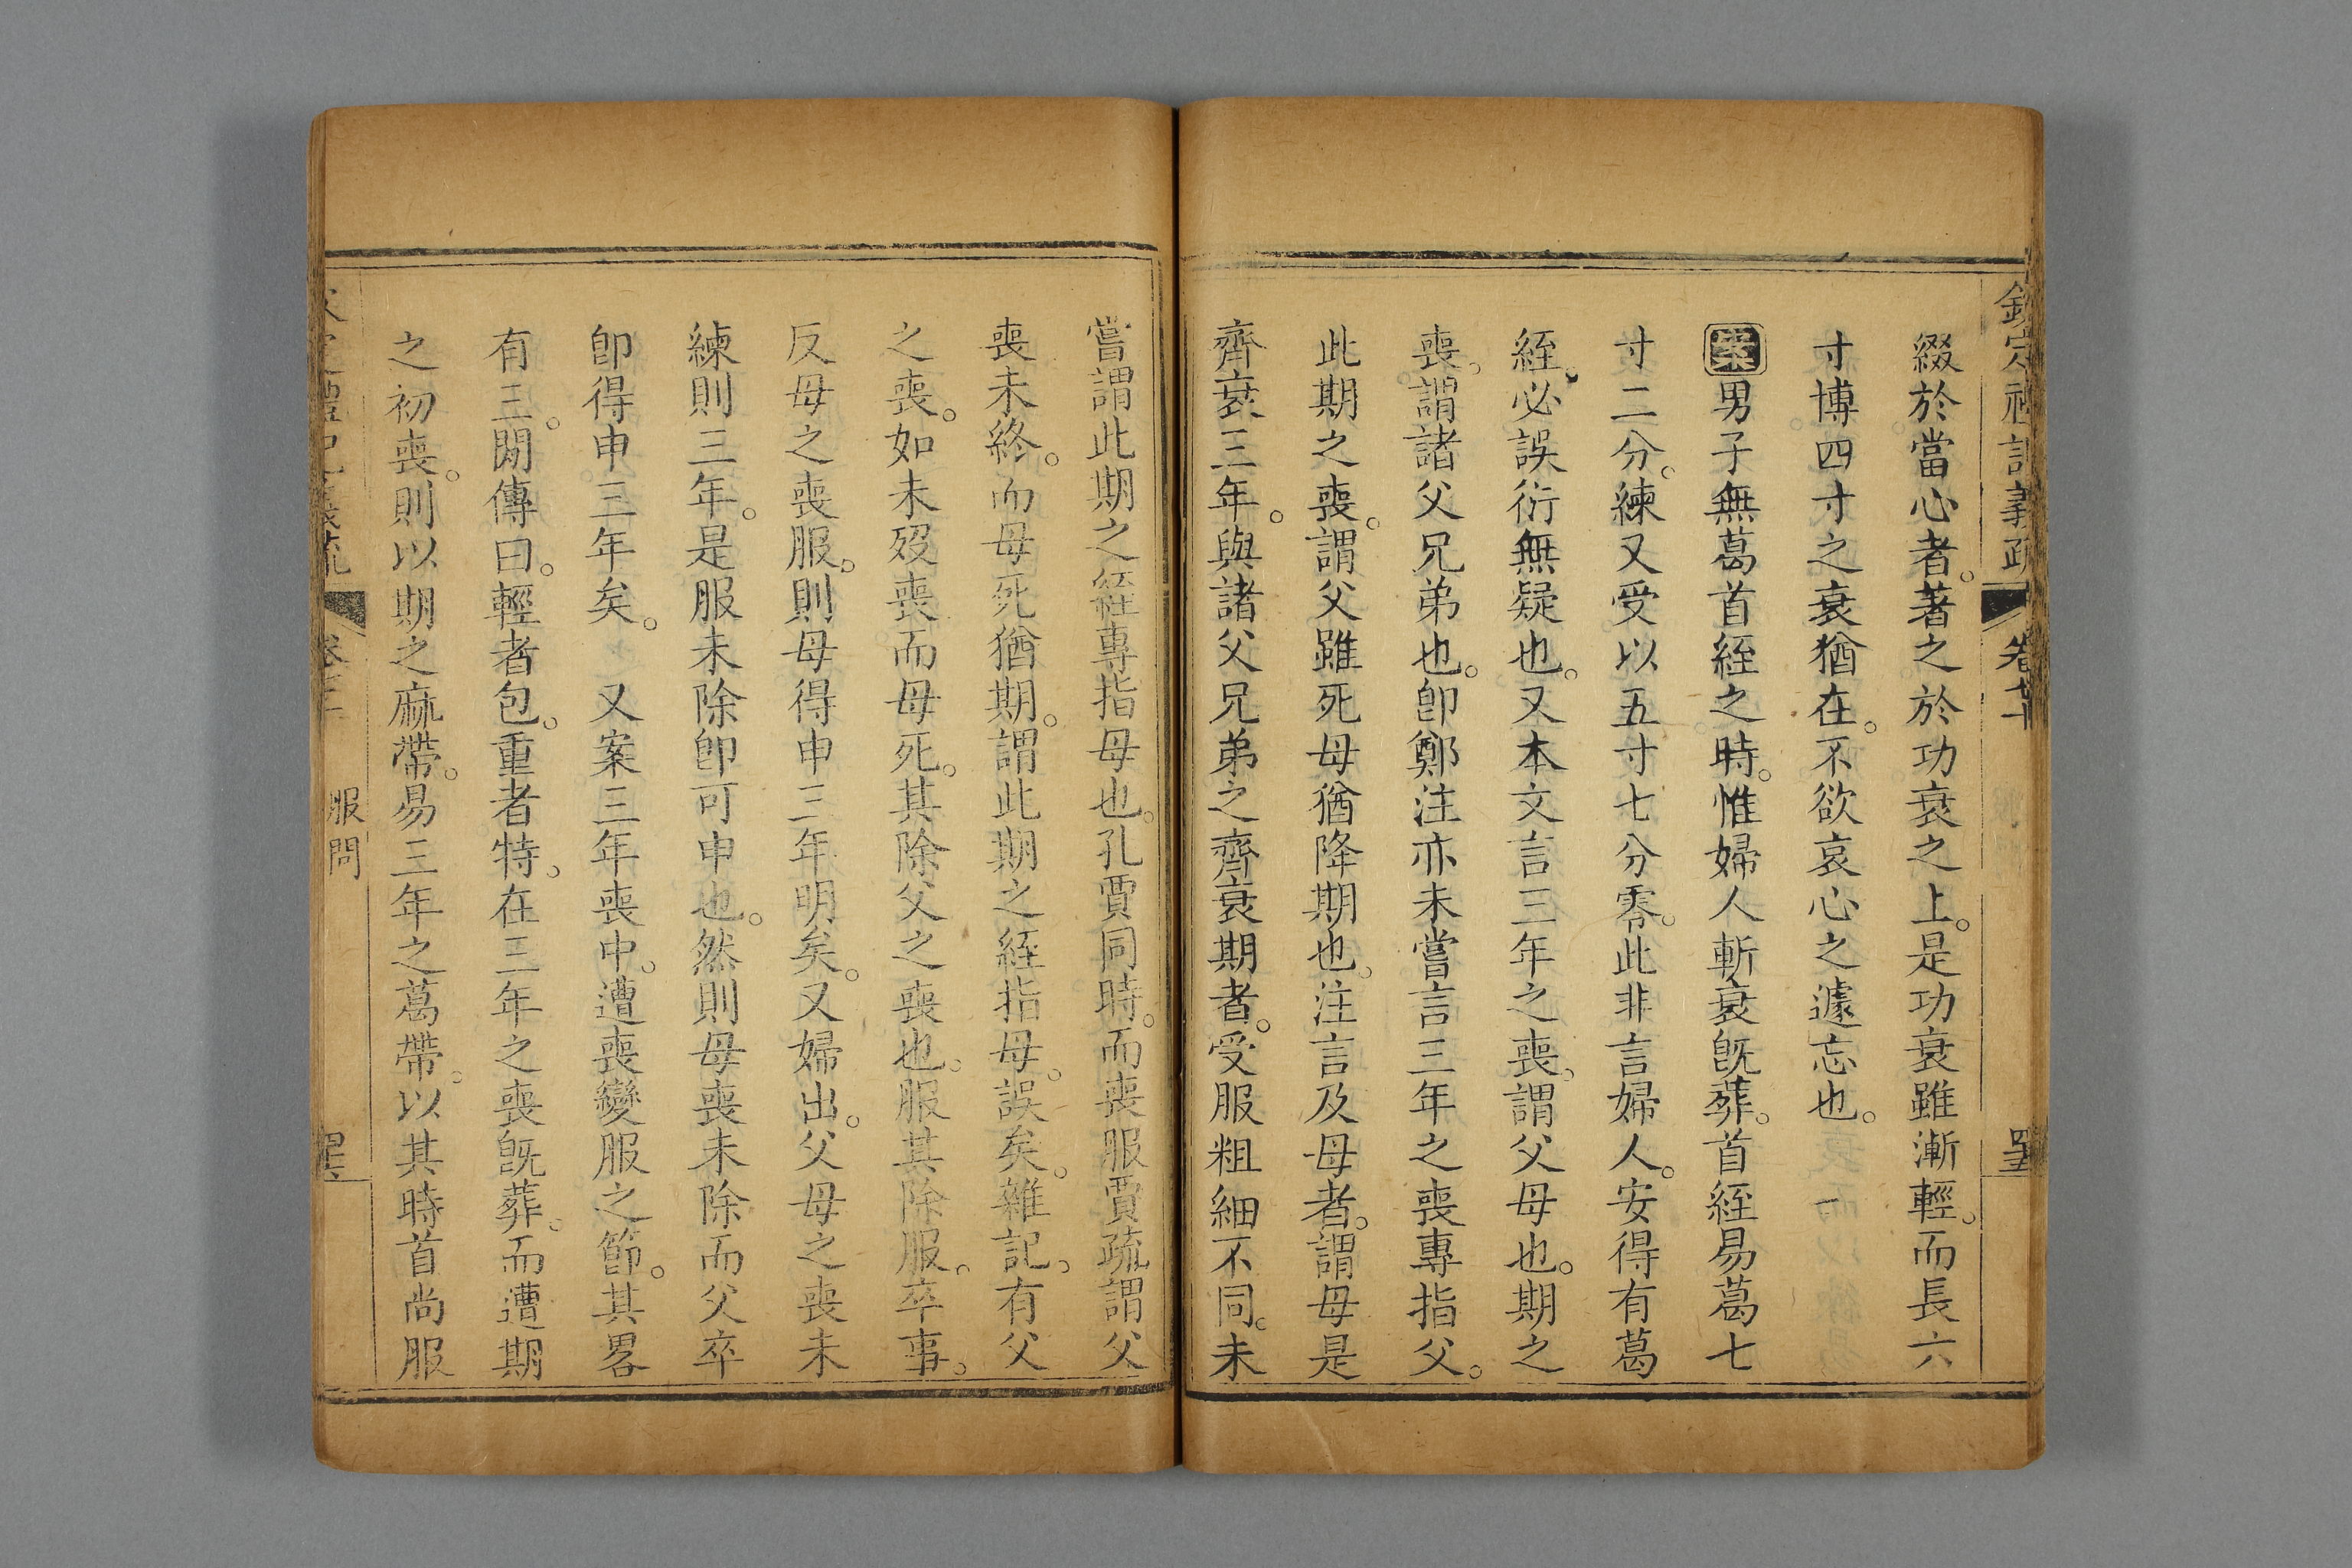 欽定禮記義疏 卷七十 罜
綴於當心者。著之於功衰之上。是功衰雖漸輕。而長六
寸博四寸之衰猶在。不欲哀心之遽忘也。
案男子無葛首絰之時。惟婦人斬衰旣葬。首絰易葛七
寸二分。練又受以五寸七分零。此非言婦人。安得有葛
絰。必誤衍無疑也。又本文言三年之喪。謂父母也。期之
喪。謂諸父兄弟也。卽鄭注亦未嘗言三年之喪專指父。
此期之喪。謂父雖死母猶降期也。注言及母者。謂母是
齊衰三年。與諸父兄弟之齊衰期者。受服粗細不同。未
嘗謂此期之絰專指母也。孔賈同時。而喪服賈疏謂父
喪未終。而母死猶期。謂此期之絰指母。誤矣。雜記。有父
之喪。如未歿喪而母死。其除父之喪也。服其除服。卒事。
反母之喪服。則母得申三年明矣。又婦出。父母之喪未
練則三年。是服未除卽可申也。然則母喪未除而父卒
卽得申三年矣。 又案三年喪中。遭喪變服之節。其畧
有三。閒傳曰。輕者包。重者特。在三年之喪旣葬。而遭期
之初喪。則以期之麻帶。易三年之葛帶。以其時首尚服
服問